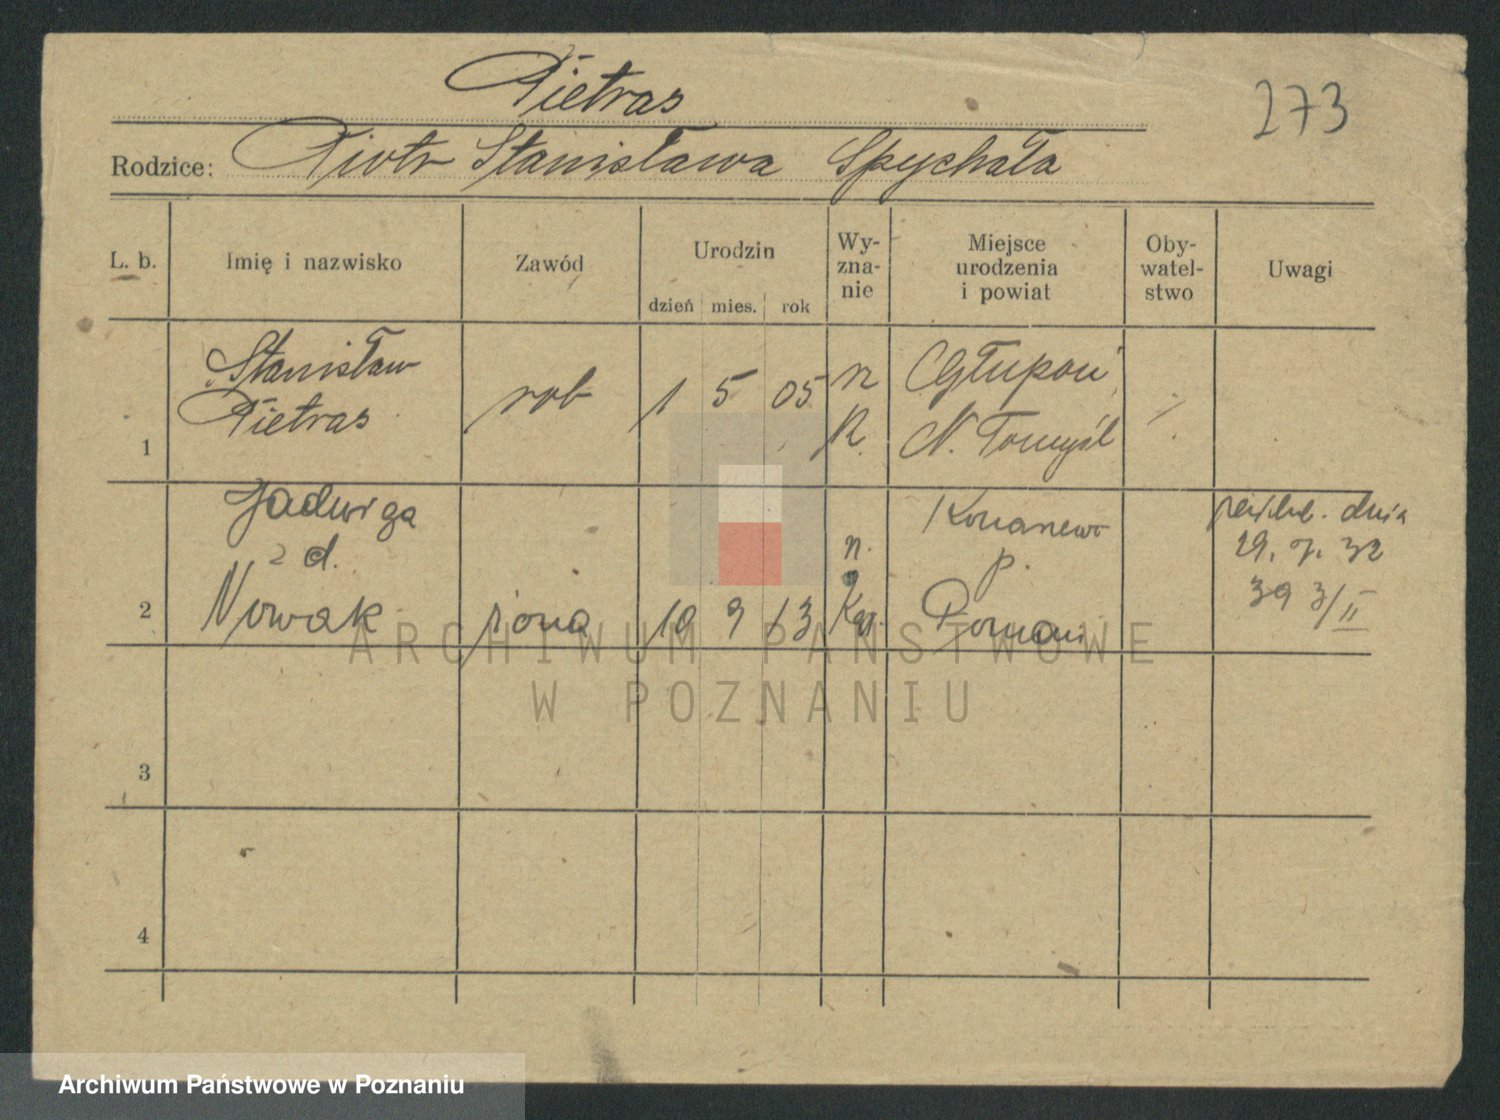 Pietras
273
Rodzice: Piotr Stanisława Spychała
L. b.
Imię i nazwisko
Zawód
Urodzin
dzień mies. rok
Wy-
zna-
nie
Miejsce
urodzenia
i powiat
Oby-
watel-
stwo
Uwagi
1
Stanisław
Pietras
rob
1 5 05
r
K.
Głupoń
N. Tomyśl
2
Jadwiga
z d.
Nowak
żona
10 9 13
r.
Kat.
p.
Poznań
dnia
29. 7. 32
39 3/II
3
4
ARCHIWUM PAŃSTWOWE
W POZNANIU
Archiwum Państwowe w Poznaniu